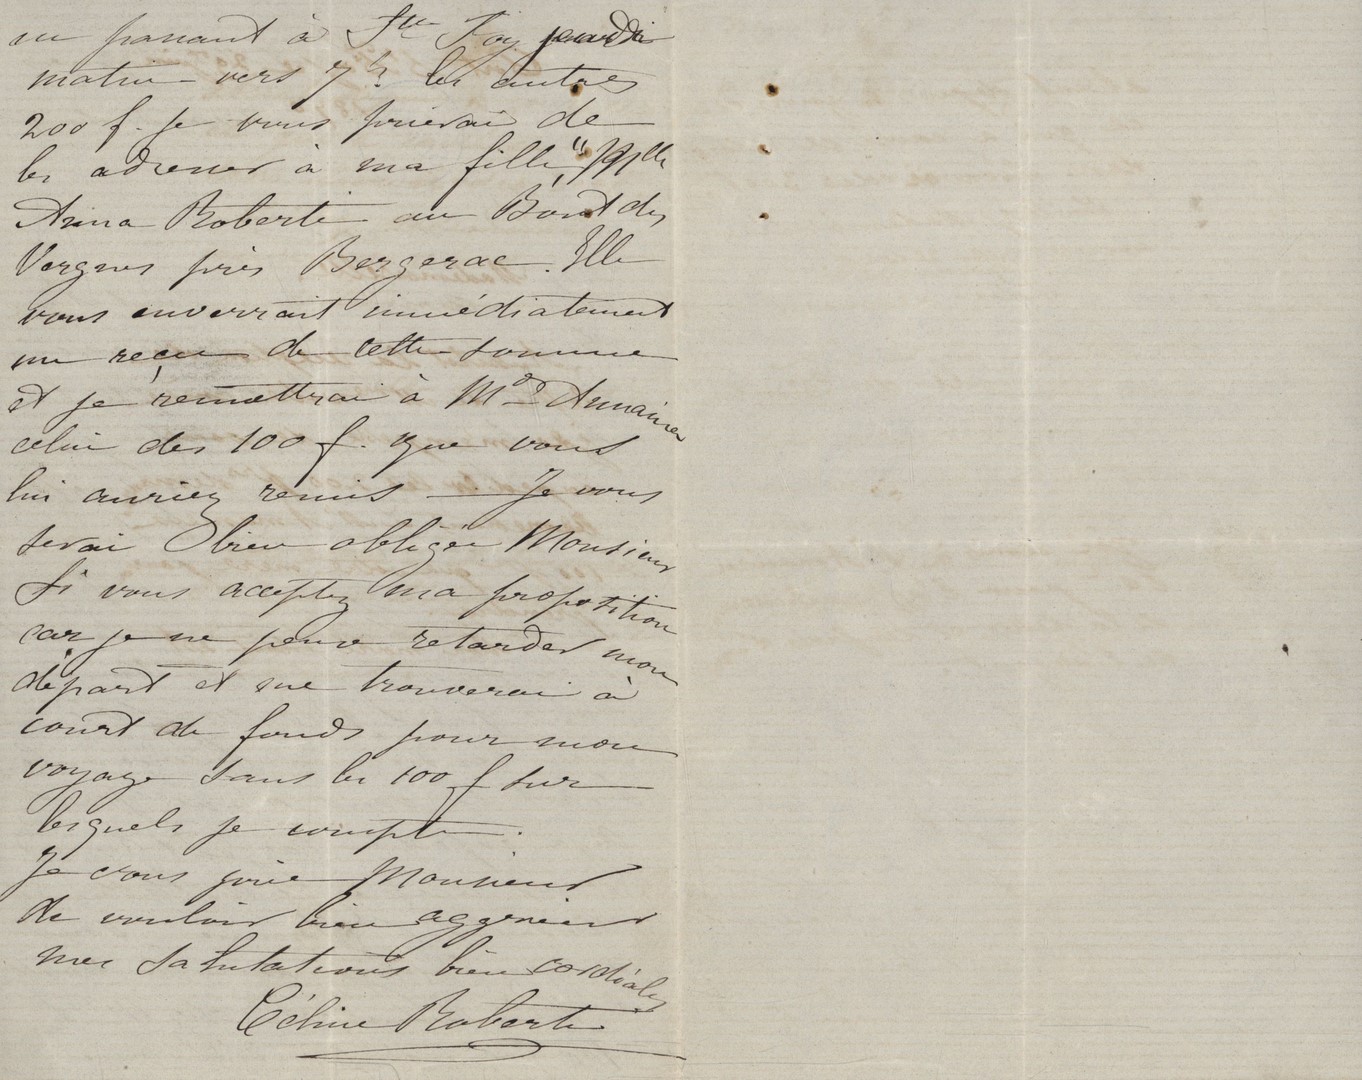 en passant à Ste Foy jeudi
matin vers 7h les autres
200 f. je vous prierai de
les adresser à ma fille "Mlle
Anna Roberti au Bout des
Vergnes près Bergerac. Elle
vous enverrait immédiatement
un reçu de cette somme
et je remettrai à Md
celui des 100 f. que vous
lui auriez remis — Je vous
serai bien obligée Monsieur
si vous acceptez ma proposition
car je ne peux retarder mon
départ et me trouverai à
court de fonds pour mon
voyage sans les 100 f sur
lesquels je compte.
Je vous prie Monsieur
de vouloir bien aggréer
mes salutations bien cordiales
Céline Roberti